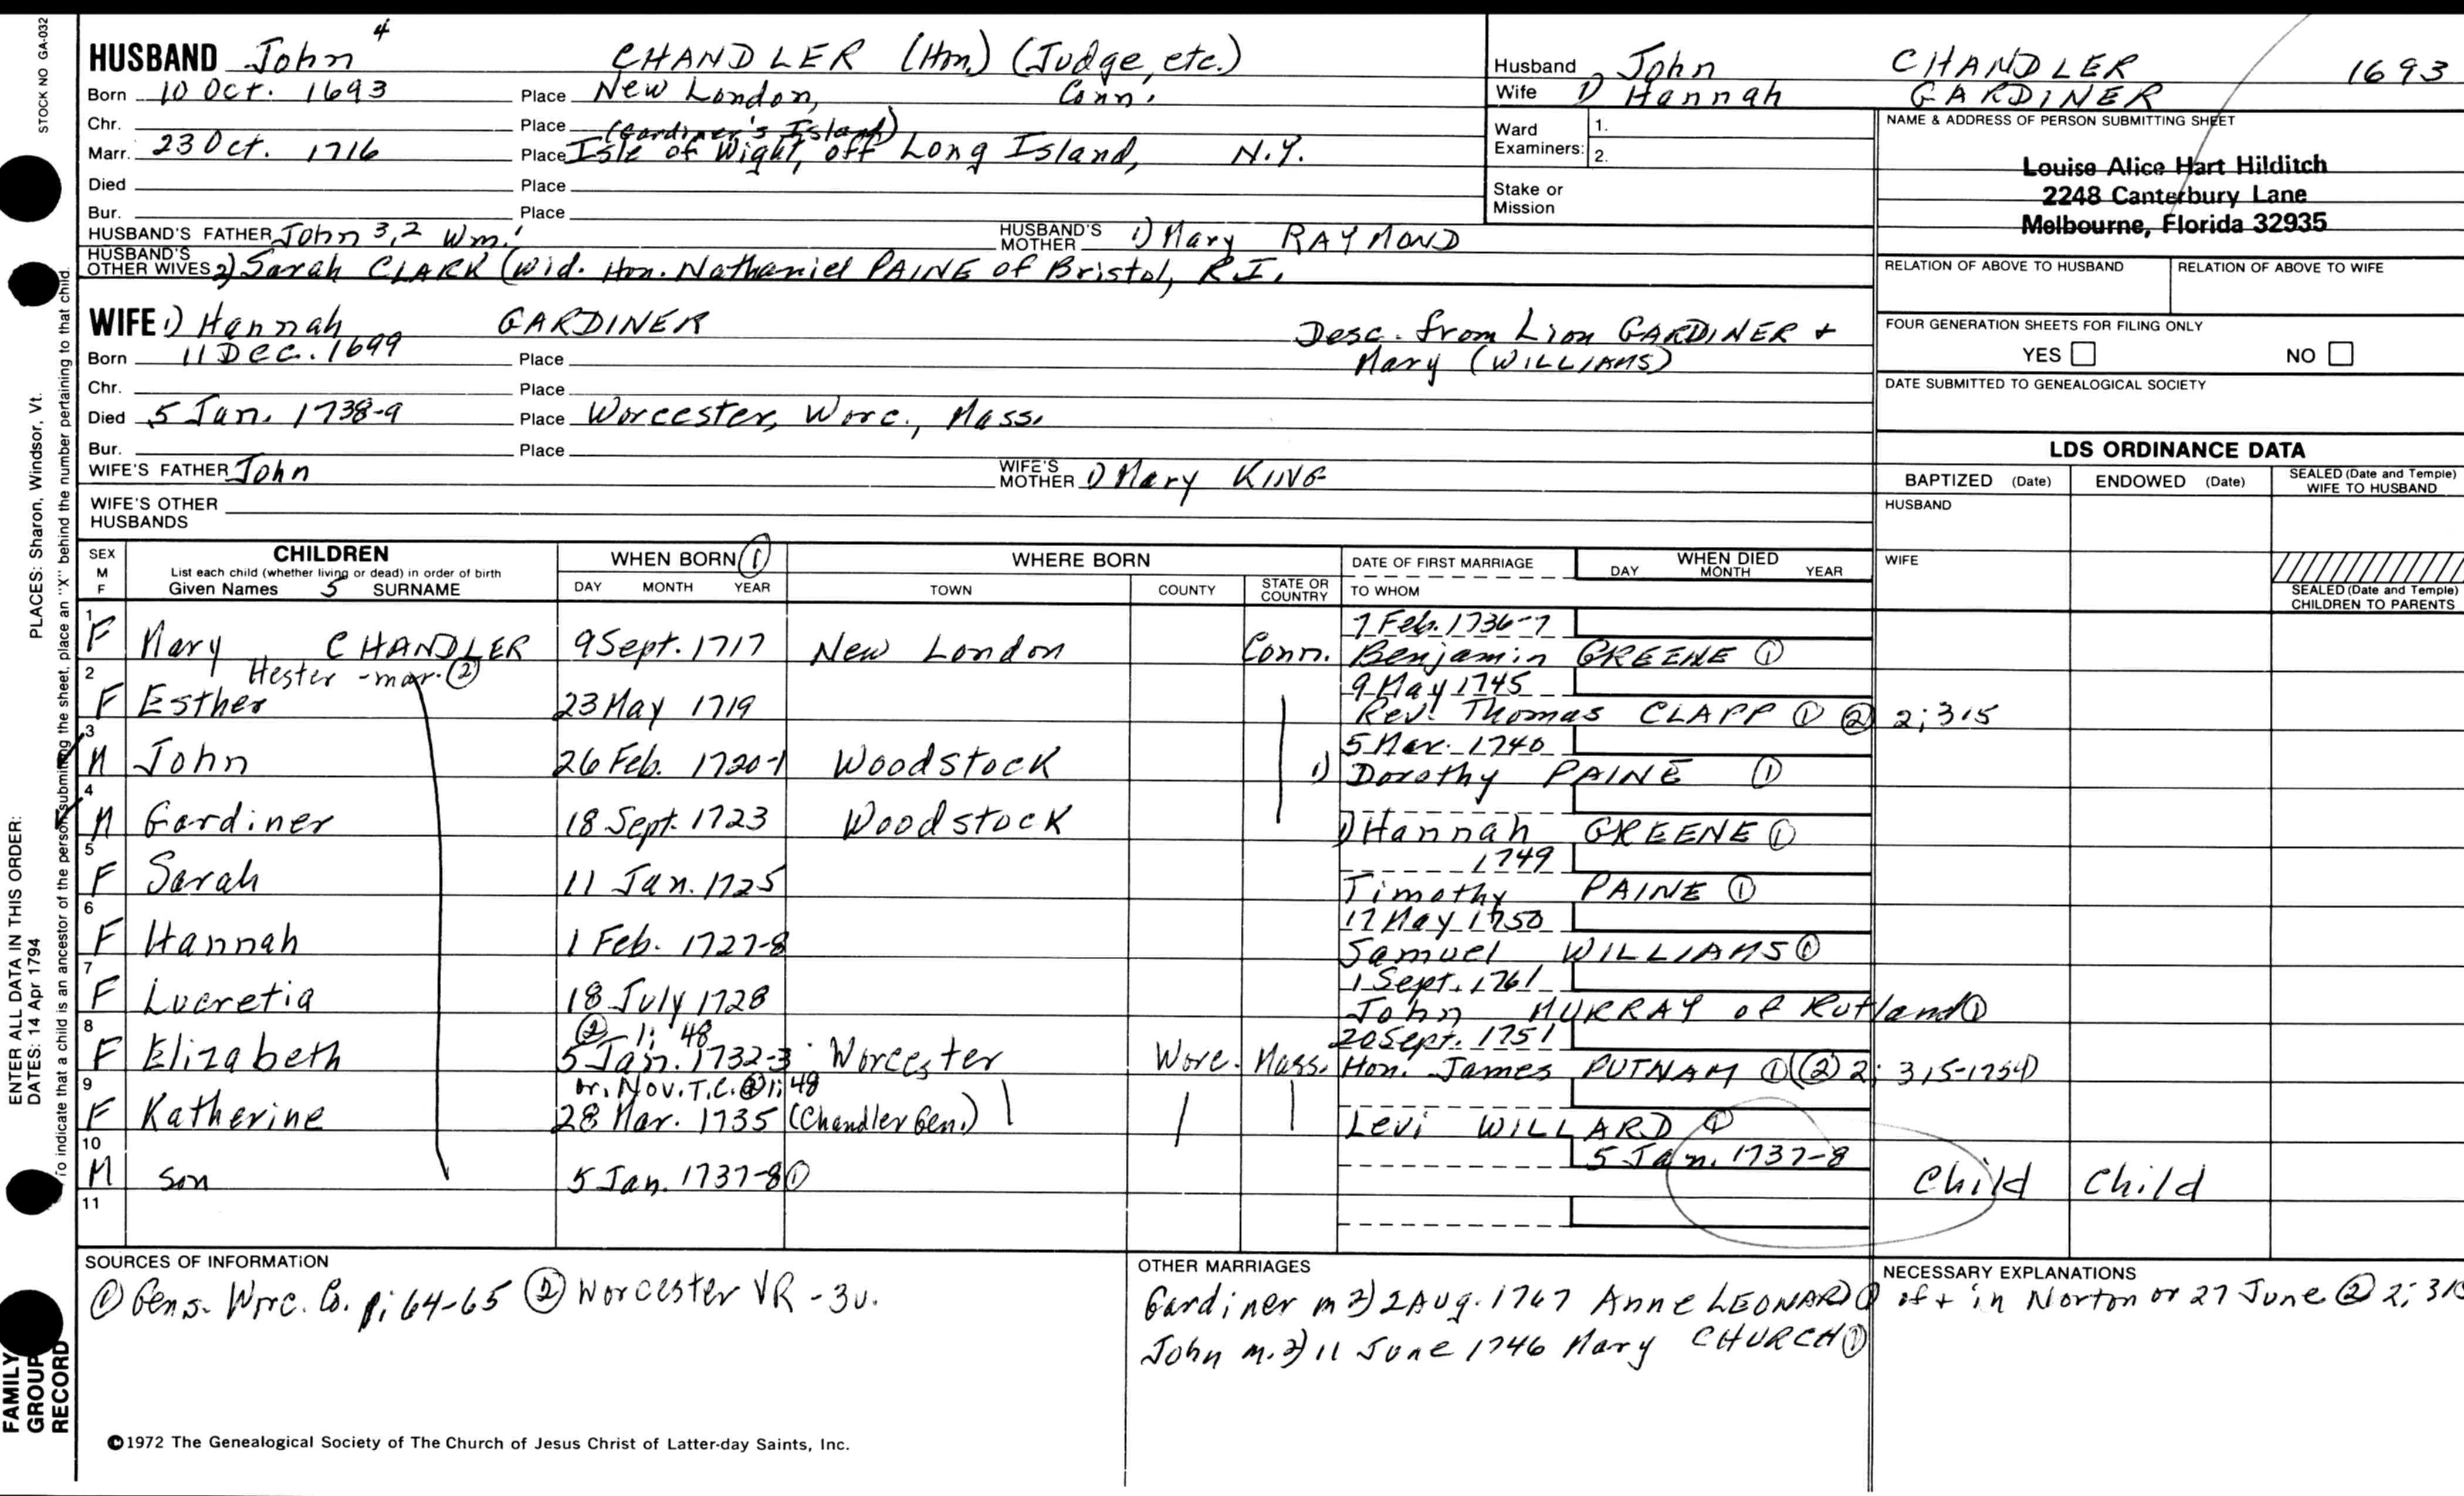 STOCK NO GA-032
HUSBAND John 4 CHANDLER (Hon.) (Judge, etc.)
Born 10 Oct. 1693 Place New London, Conn.
Chr. Place (Gardiner's Island)
Marr. 23 Oct. 1716 Place Isle of Wight, off Long Island, N.Y.
Died Place
Bur. Place
HUSBAND'S FATHER John 3,2 Wm.1 HUSBAND'S MOTHER 1) Mary RAYMOND
HUSBAND'S OTHER WIVES 2) Sarah CLARK (wid. Hon. Nathaniel PAINE of Bristol, R.I.
WIFE 1) Hannah GARDINER Desc. from Lion GARDINER +
Mary (WILLIAMS)
Born 11 Dec. 1699 Place
Chr. Place
Died 5 Jan. 1738-9 Place Worcester, Worc., Mass.
Bur. Place
WIFE'S FATHER John WIFE'S MOTHER 1) Mary KING
WIFE'S OTHER HUSBANDS
Husband John CHANDLER 1693
Wife 1) Hannah GARDINER
Ward Examiners: 1.
2.
Stake or Mission
NAME & ADDRESS OF PERSON SUBMITTING SHEET
Louise Alice Hart Hilditch
2248 Canterbury Lane
Melbourne, Florida 32935
RELATION OF ABOVE TO HUSBAND RELATION OF ABOVE TO WIFE
FOUR GENERATION SHEETS FOR FILING ONLY
YES NO
DATE SUBMITTED TO GENEALOGICAL SOCIETY
LDS ORDINANCE DATA
BAPTIZED (Date) ENDOWED (Date) SEALED (Date and Temple) WIFE TO HUSBAND
HUSBAND
WIFE
SEALED (Date and Temple) CHILDREN TO PARENTS
SEX M F CHILDREN WHEN BORN ① WHERE BORN DATE OF FIRST MARRIAGE WHEN DIED
List each child (whether living or dead) in order of birth
Given Names 5 SURNAME DAY MONTH YEAR TOWN COUNTY STATE OR COUNTRY TO WHOM DAY MONTH YEAR
7 Feb. 1736-7
1 F Mary CHANDLER 9 Sept. 1717 New London Conn. Benjamin GREENE ①
Hester - mar. ② 9 May 1745
2 F Esther 23 May 1719 Rev. Thomas CLAPP ① ② 2; 315
5 Mar. 1740
3 M John 26 Feb. 1720-1 Woodstock 1) Dorothy PAINE ①
4 M Gardiner 18 Sept. 1723 Woodstock 1) Hannah GREENE ①
1749
5 F Sarah 11 Jan. 1725 Timothy PAINE ①
17 May 1750
6 F Hannah 1 Feb. 1727-8 Samuel WILLIAMS ①
1 Sept. 1761
7 F Lucretia 18 July 1728 John MURRAY of Rutland ①
② 1; 48 20 Sept. 1751
8 F Elizabeth 5 Jan. 1732-3 Worcester Worc. Mass. Hon. James PUTNAM ① (② 2; 315-1754)
or. Nov. T.C. ② 1; 48
9 F Katherine 28 Mar. 1735 (Chandler Gen.) Levi WILLARD ①
5 Jan. 1737-8
10 M son 5 Jan. 1737-8 ① Child Child
11
SOURCES OF INFORMATION
① Gens. Worc. Co. p; 64-65 ② Worcester VR - 3v.
OTHER MARRIAGES
Gardiner m 2) 2 Aug. 1767 Anne LEONARD ①
John m. 2) 11 June 1746 Mary CHURCH ①
NECESSARY EXPLANATIONS
of + in Norton or 27 June ② 2; 315
©1972 The Genealogical Society of The Church of Jesus Christ of Latter-day Saints, Inc.
FAMILY GROUP RECORD
ENTER ALL DATA IN THIS ORDER:
DATES: 14 Apr 1794
PLACES: Sharon, Windsor, Vt.
To indicate that a child is an ancestor of the person submitting the sheet, place an "X" behind the number pertaining to that child.